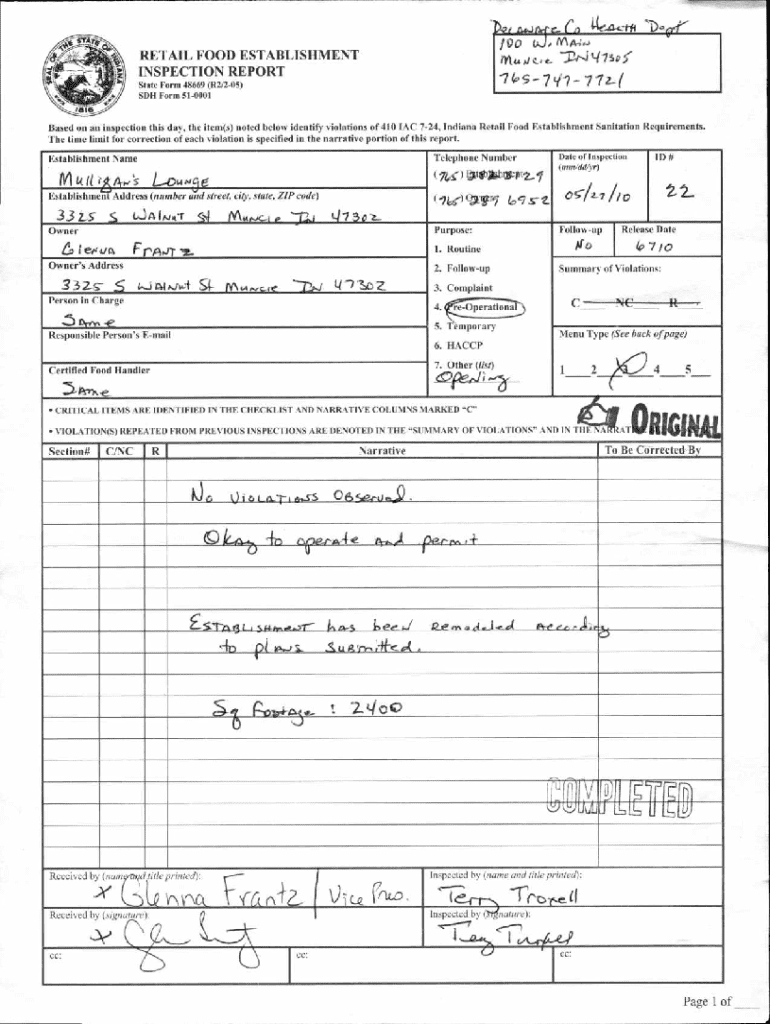 DELAWARE Co HEALTH Dept
100 W. MAIN
Muncie IN 47305
765-747-7721
RETAIL FOOD ESTABLISHMENT
INSPECTION REPORT
State Form 48669 (R2/2-05)
SDH Form 51-0001
Based on an inspection this day, the item(s) noted below identify violations of 410 IAC 7-24, Indiana Retail Food Establishment Sanitation Requirements.
The time limit for correction of each violation is specified in the narrative portion of this report.
Establishment Name
MulligAn's LOUNGE
Telephone Number
(765)
(765) 6952
Date of Inspection
(mm/dd/yr)
05/27/10
ID #
22
Establishment Address (number and street, city, state, ZIP code)
3325 S WAlNut St Muncie IN 47302
Owner
Glenna FRANTZ
Owner's Address
3325 S WAlNut St Muncie IN 47302
Person in Charge
SAme
Responsible Person's E-mail
Certified Food Handler
SAme
Purpose:
1. Routine
2. Follow-up
3. Complaint
4. Pre-Operational
5. Temporary
6. HACCP
7. Other (list)
OpeNiNg
Follow-up
No
Release Date
6710
Summary of Violations:
C NC R
Menu Type (See back of page)
1 2 3 4 5
• CRITICAL ITEMS ARE IDENTIFIED IN THE CHECKLIST AND NARRATIVE COLUMNS MARKED "C"
ORIGINAL
• VIOLATION(S) REPEATED FROM PREVIOUS INSPECTIONS ARE DENOTED IN THE "SUMMARY OF VIOLATIONS" AND IN THE
Section# C/NC R Narrative To Be Corrected By
No VIOLATIONS Observed.
Okay to operate And permit
ESTABLISHMENT has been Remodeled According
to plANS SUBmitted.
Sq FootAge : 2400
COMPLETED
Received by (name and title printed):
x Glenna Frantz / Vice Pres.
Inspected by (name and title printed):
Terry Troxell
Received by (signature):
x
Inspected by (signature):
cc:
cc:
cc:
Page 1 of